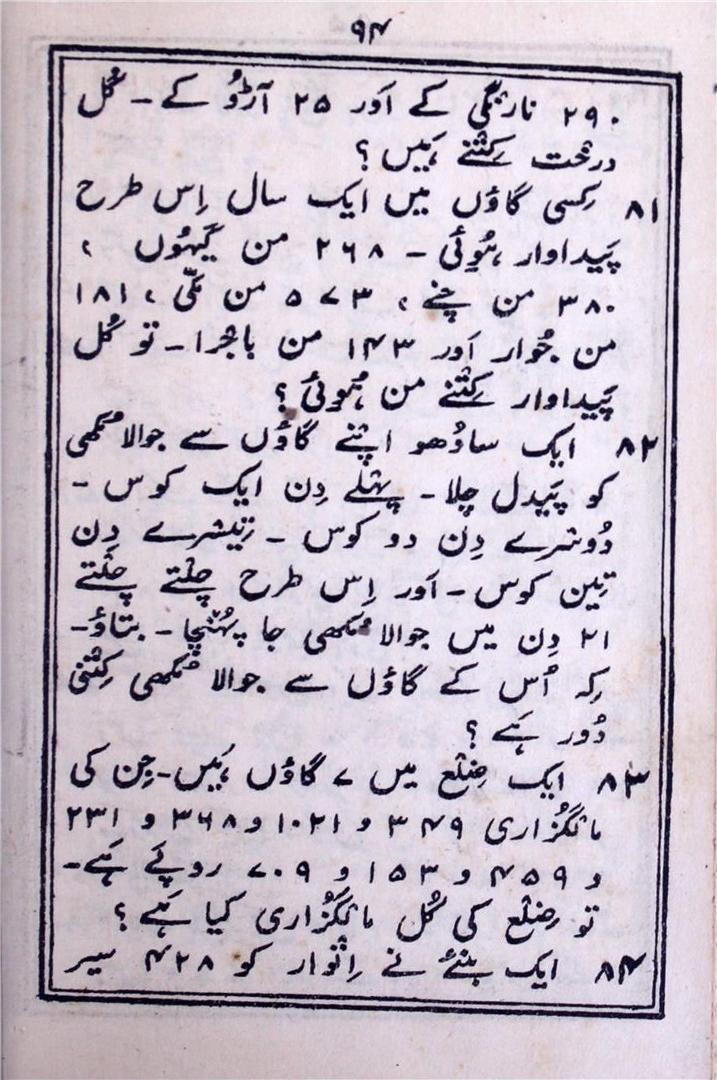 ۹۴
۲۹۰ نارنگی کے اَور ۲۵ آڑُو کے ـ کُل
درخت کِتنے ہَیں ؟
۸۱ کِسی گاؤں میں ایک سال اِس طرح
پَیداوار ہُوئی ـ ۲۶۸ من گیہُوں ،
۳۸۰ من چنے ، ۵۷۳ من مکّی ، ۱۸۱
من جُوار اَور ۱۴۳ من باجرا ـ تو کُل
پَیداوار کِتنے من ہُوئی ؟
۸۲ ایک سادُھو اپنے گاؤں سے جوالا مُکھی
کو پَیدل چلا ـ پہلے دِن ایک کوس ـ
دُوسرے دِن دو کوس ـ تِیسرے دِن
تِین کوس ـ اَور اِس طرح چلتے چلتے
۲۱ دِن میں جوالا مُکھی جا پہُنچا ـ بتاؤ ـ
کِہ اُس کے گاؤں سے جوالا مُکھی کِتنی
دُور ہَے ؟
۸۳ ایک ضِلع میں ۷ گاؤں ہَیں ـ جِن کی
مالگُزاری ۳۴۹ و ۱۰۲۱ و ۳۶۸ و ۲۳۱
و ۴۵۹ و ۱۵۳ و ۷۰۹ روپَے ہَے ـ
تو ضِلع کی کُل مالگُزاری کیا ہَے ؟
۸۴ ایک بنئے نے اِتوار کو ۴۲۸ سیر